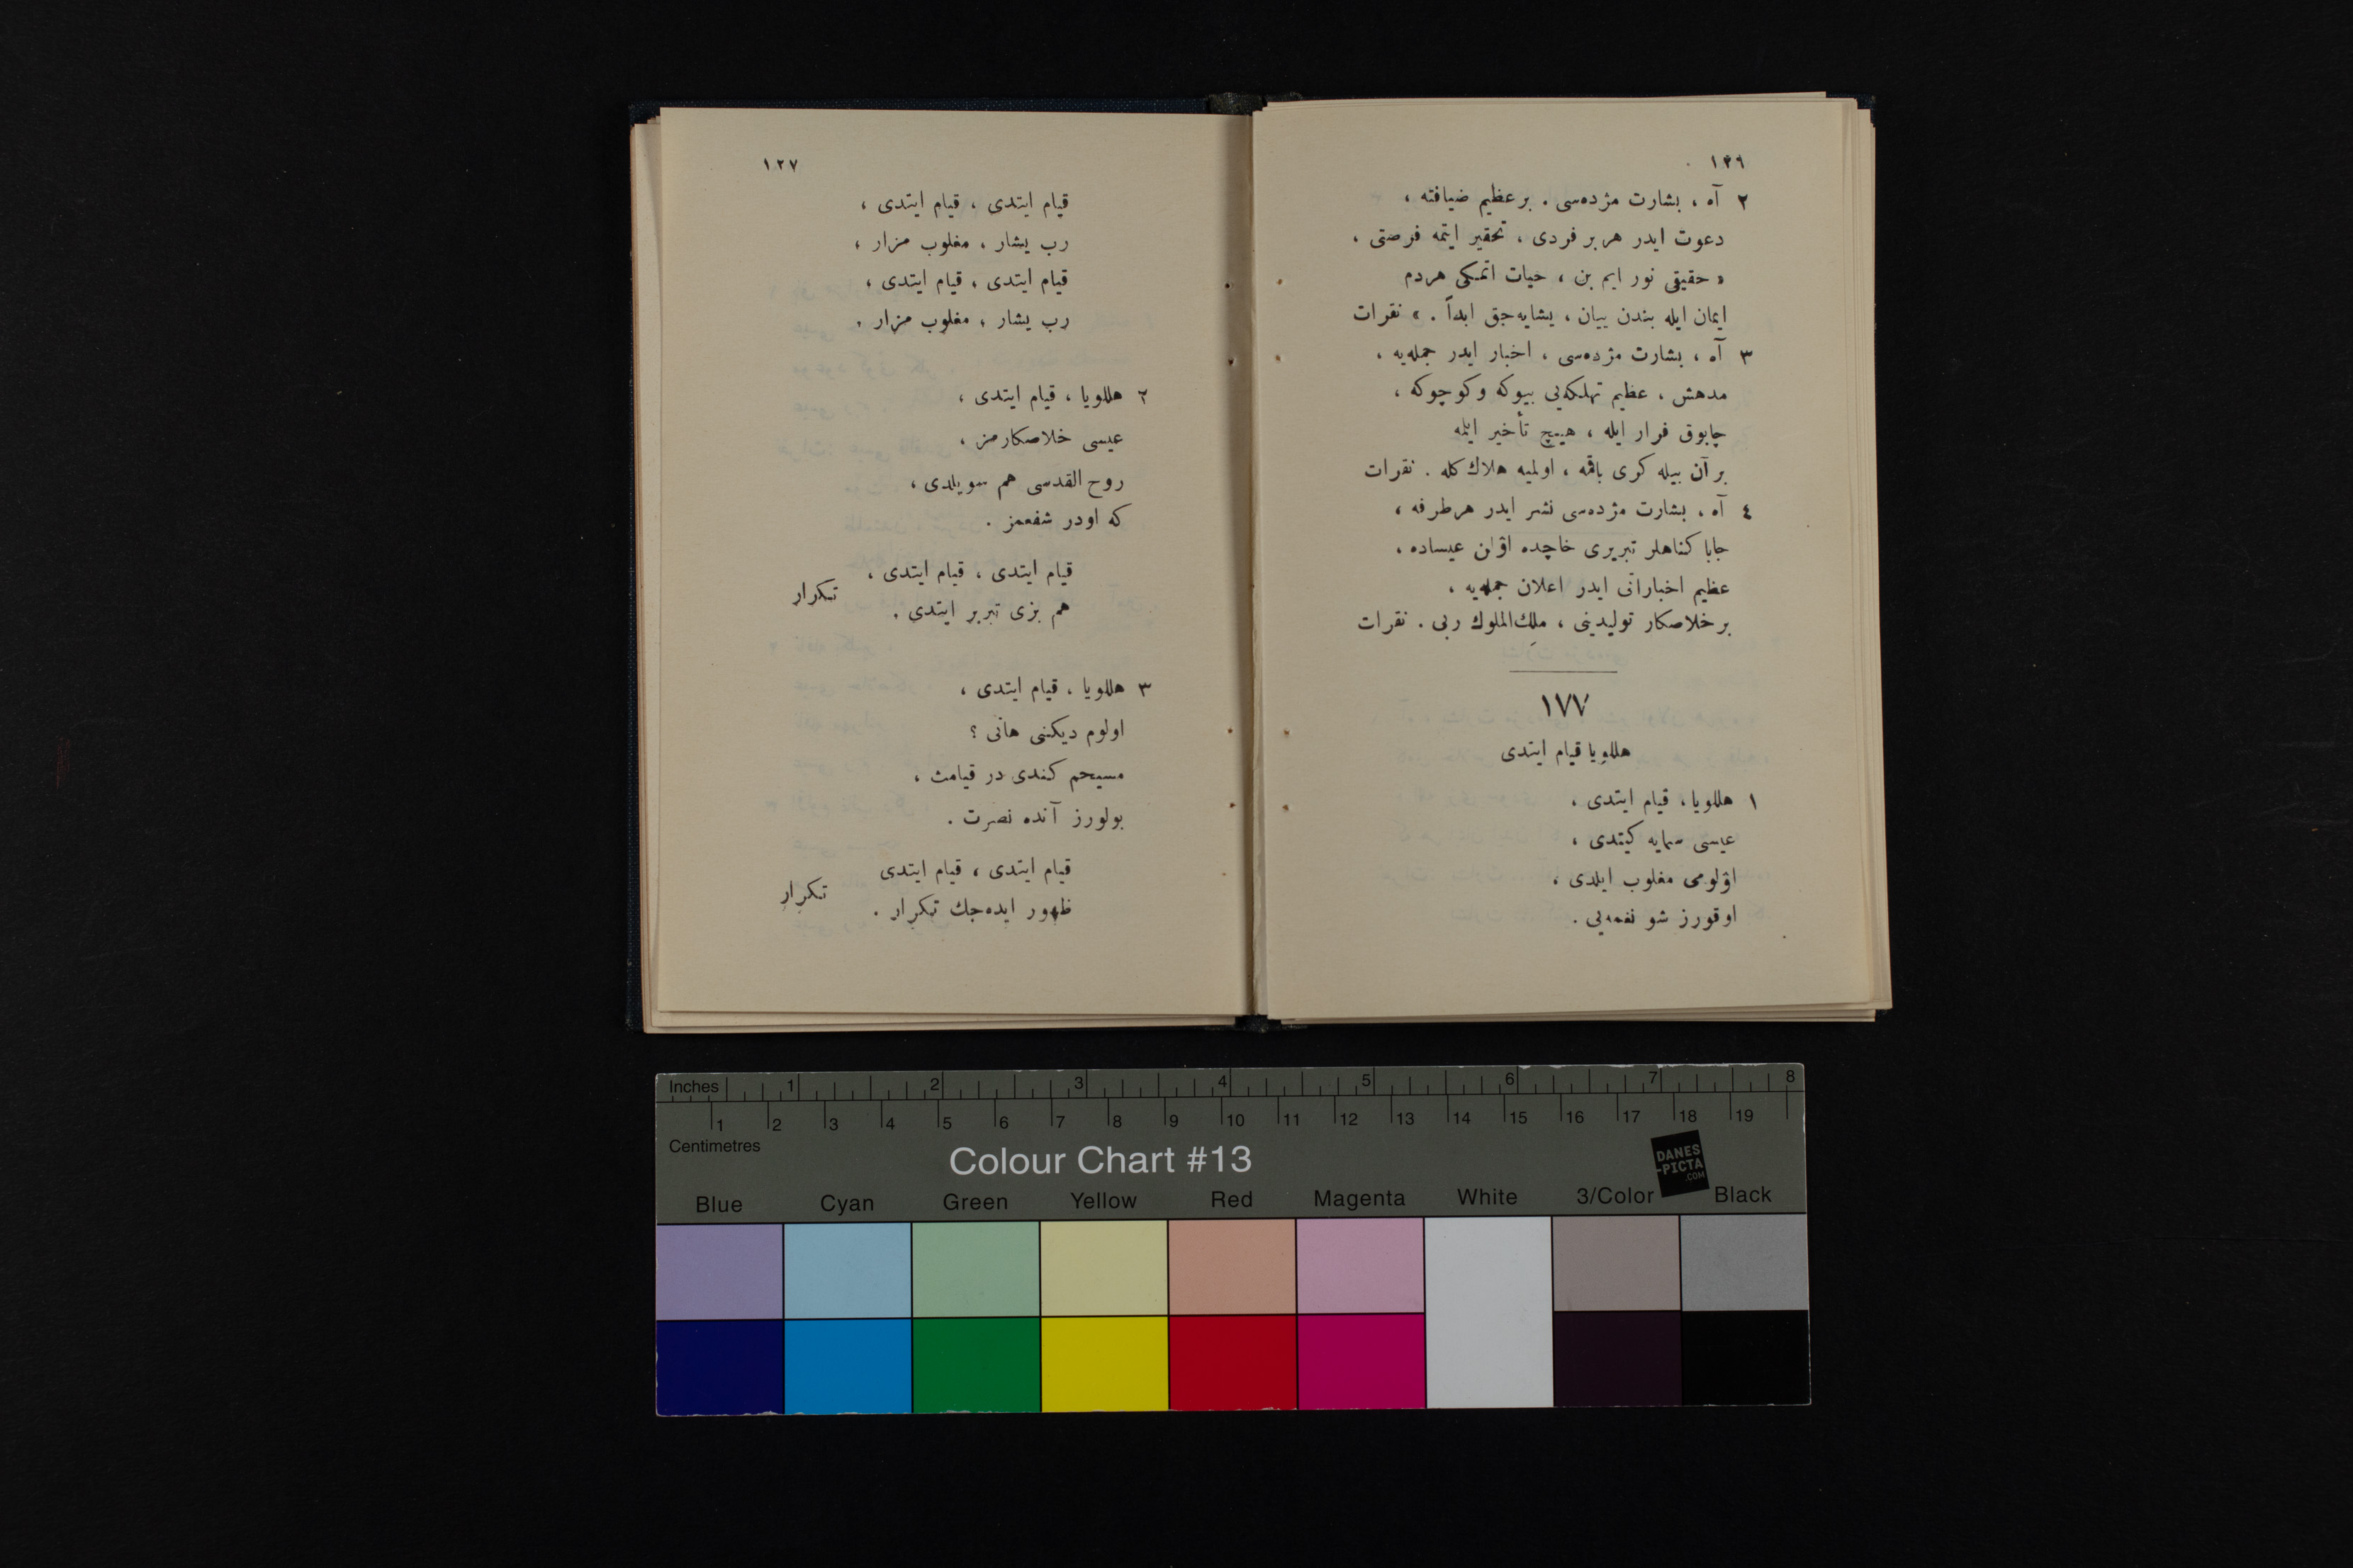 ١٢٦
٢ آه ، بشارت مژده‌سی . بر عظیم ضیافته ،
دعوت ایدر هر بر فردی ، تحقیر ایتمه فرصتی ،
« حقیقی نور ایم بن ، حیات اتمکی هردم
ایمان ایله بندن ییان ، یشایه‌جق ابداً . » نقرات
٣ آه ، بشارت مژده‌سی ، اخبار ایدر جمله‌یه ،
مدهش ، عظیم تهلکه‌یی بیوکه وکوچوکه ،
چابوق فرار ایله ، هیچ تأخیر ایلمه
بر آن بیله کری باقمه ، اولمیه هلاك کله . نقرات
٤ آه ، بشارت مژده‌سی نشر ایدر هرطرفه ،
جابا کناهلر تبریری خاچده اؤلن عیساده ،
عظیم اخباراتی ایدر اعلان جمله‌یه ،
بر خلاصکار تولیدینی ، ملِك‌الملوك ربی . نقرات
١٧٧
هللویا قیام ایتدی
١ هللویا ، قیام ایتدی ،
عیسی سمایه کیتدی ،
اؤلومی مغلوب ایلدی ،
اوقورز شو نغمه‌یی .
١٢٧
قیام ایتدی ، قیام ایتدی ،
رب یشار ، مغلوب مزار ،
قیام ایتدی ، قیام ایتدی ،
رب یشار ، مغلوب مزار .
٢ هللویا ، قیام ایتدی ،
عیسی خلاصکارمز ،
روح القدسی هم سویلدی ،
که اودر شفعمز .
قیام ایتدی ، قیام ایتدی ،
هم بزی تبریر ایتدی .
تکرار
٣ هللویا ، قیام ایتدی ،
اولوم دیکنی هانی ؟
مسیحم کندی در قیامت ،
بولورز آنده نصرت .
قیام ایتدی ، قیام ایتدی
ظهور ایده‌جك تکرار .
تکرار
Inches 1 2 3 4 5 6 7 8
1 2 3 4 5 6 7 8 9 10 11 12 13 14 15 16 17 18 19
Centimetres
Colour Chart #13
DANES
-PICTA
.COM
Blue Cyan Green Yellow Red Magenta White 3/Color Black